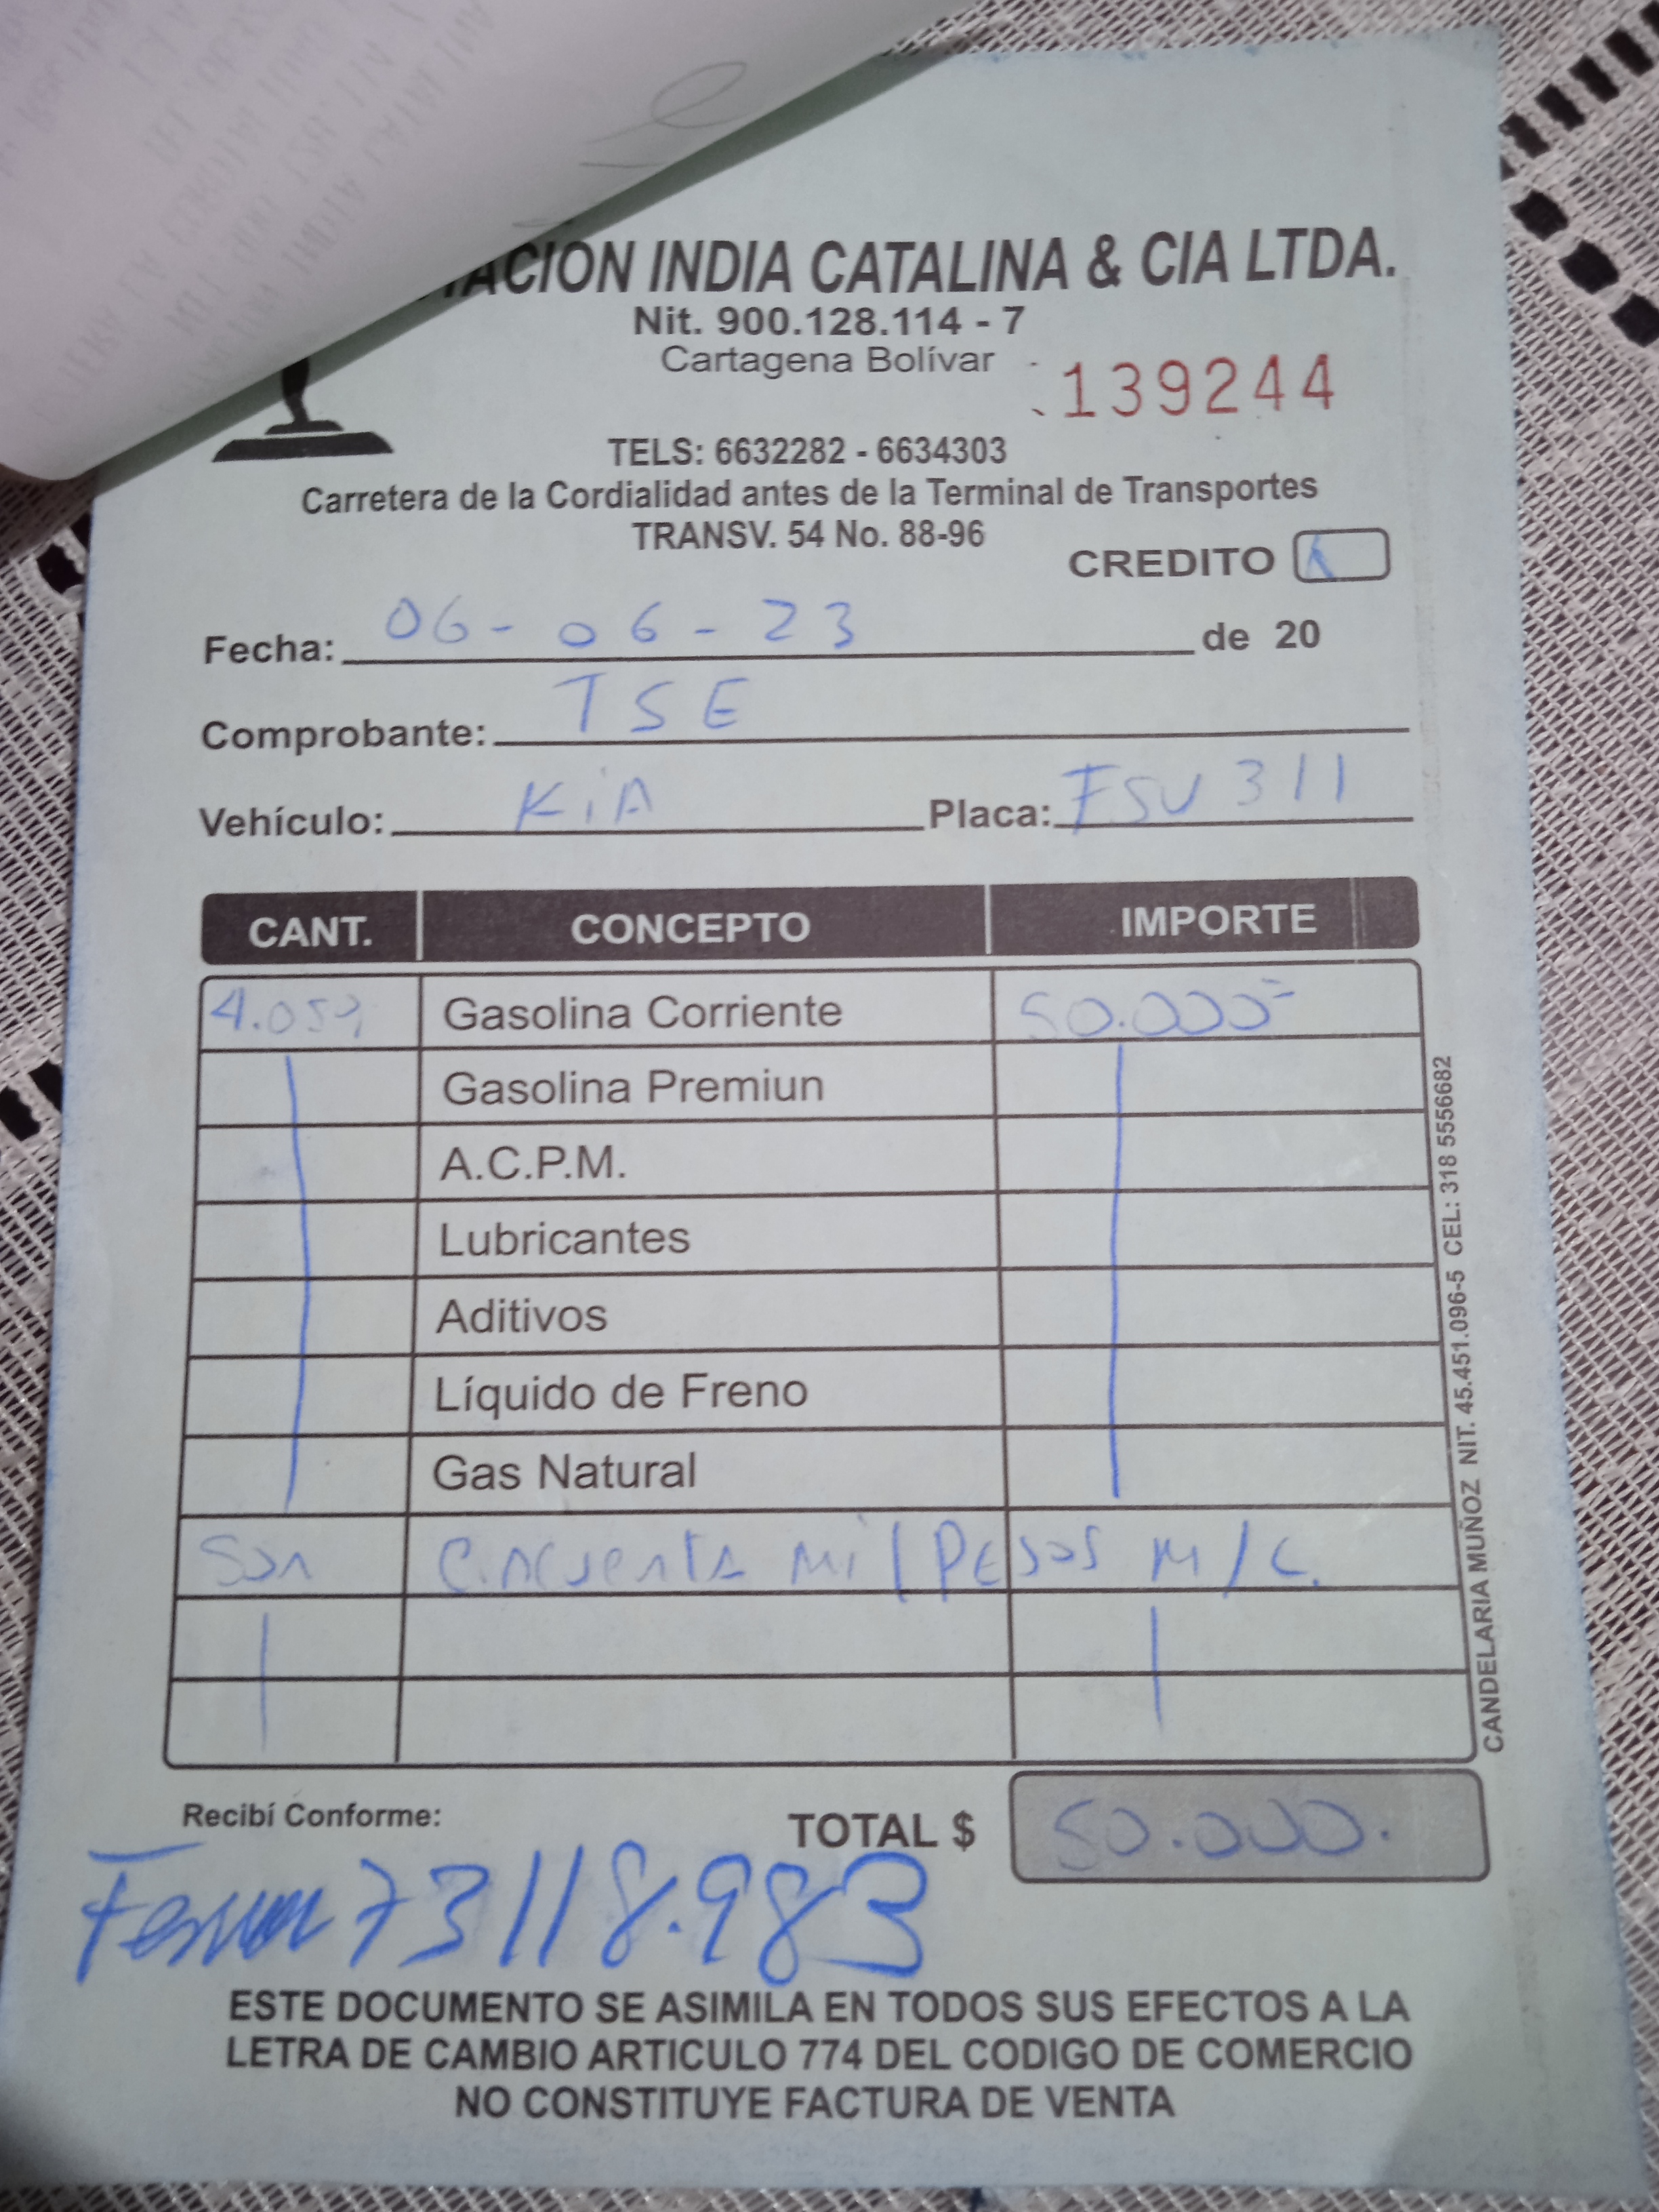 ACION INDIA CATALINA & CIA LTDA.
Nit. 900.128.114 - 7
Cartagena Bolívar
139244
TELS: 6632282 - 6634303
Carretera de la Cordialidad antes de la Terminal de Transportes
TRANSV. 54 No. 88-96
CREDITO
Fecha: 06-06-23 de 20
Comprobante: TSE
Vehículo: KiA Placa: FSU 311
CANT. CONCEPTO IMPORTE
4.059 Gasolina Corriente 50.000=
Gasolina Premiun
A.C.P.M.
Lubricantes
Aditivos
Líquido de Freno
Gas Natural
Son Cincuenta mil Pesos M/C.
Recibí Conforme: TOTAL $ 50.000.
73118.983
ESTE DOCUMENTO SE ASIMILA EN TODOS SUS EFECTOS A LA
LETRA DE CAMBIO ARTICULO 774 DEL CODIGO DE COMERCIO
NO CONSTITUYE FACTURA DE VENTA
CANDELARIA MUÑOZ NIT. 45.451.096-5 CEL: 318 5556682